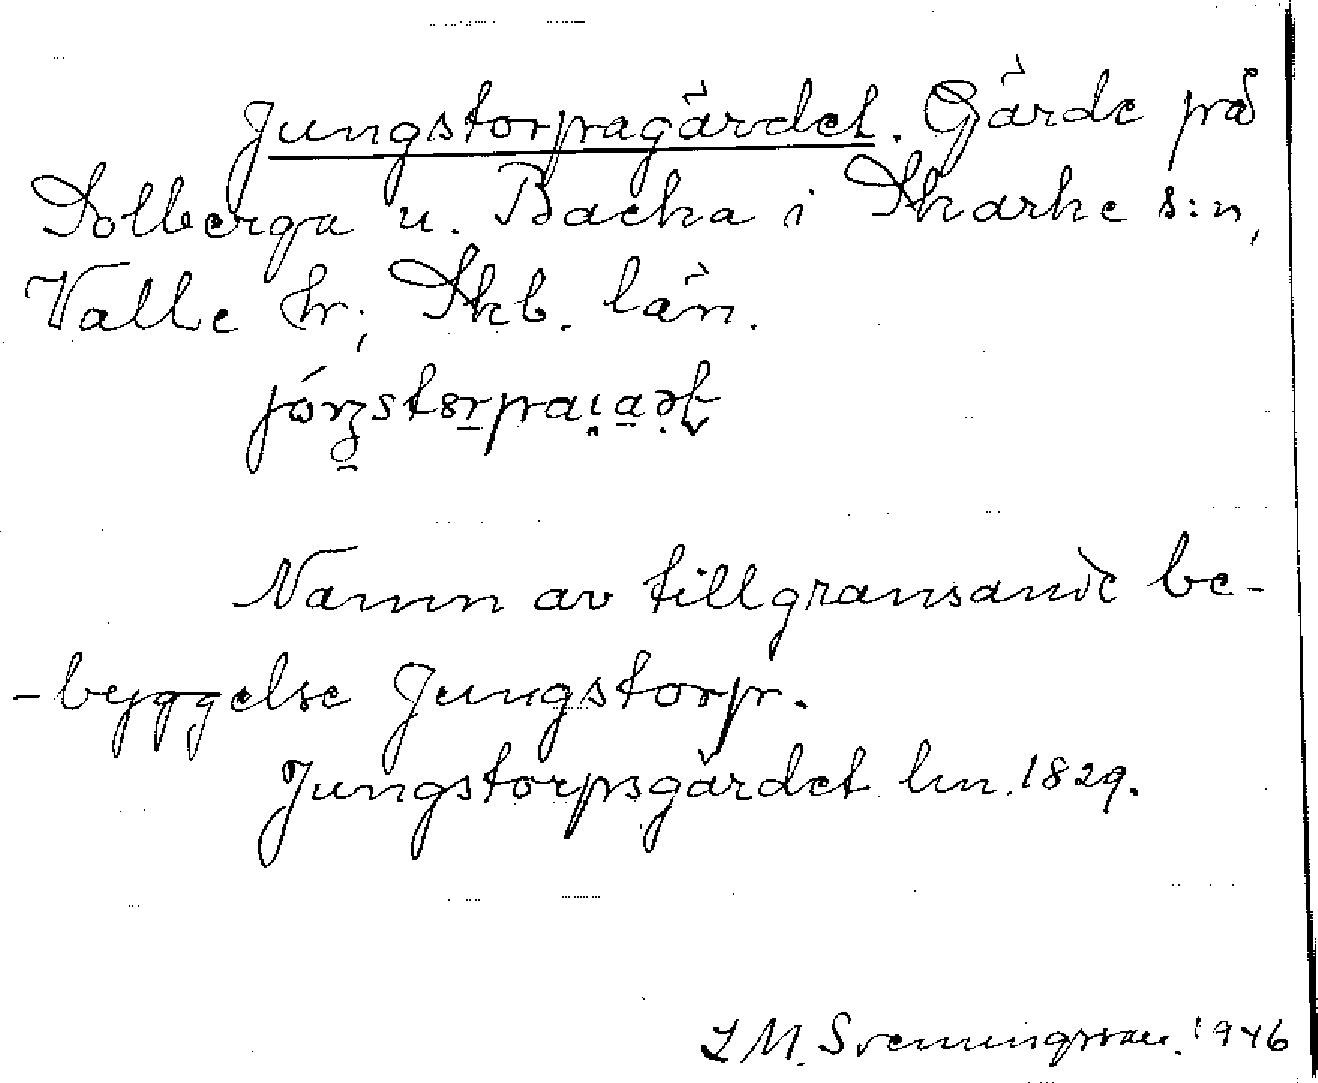 Jungstorpagärdet. Gärde på
Solberga u. Backa i Skarke s:n,
Valle hr, Skb. län.
Namn av tillgränsande be-
-byggelse Jungstorp.
Jungstorpsgärdet lm. 1829.
L M. Svenungsson. 1946